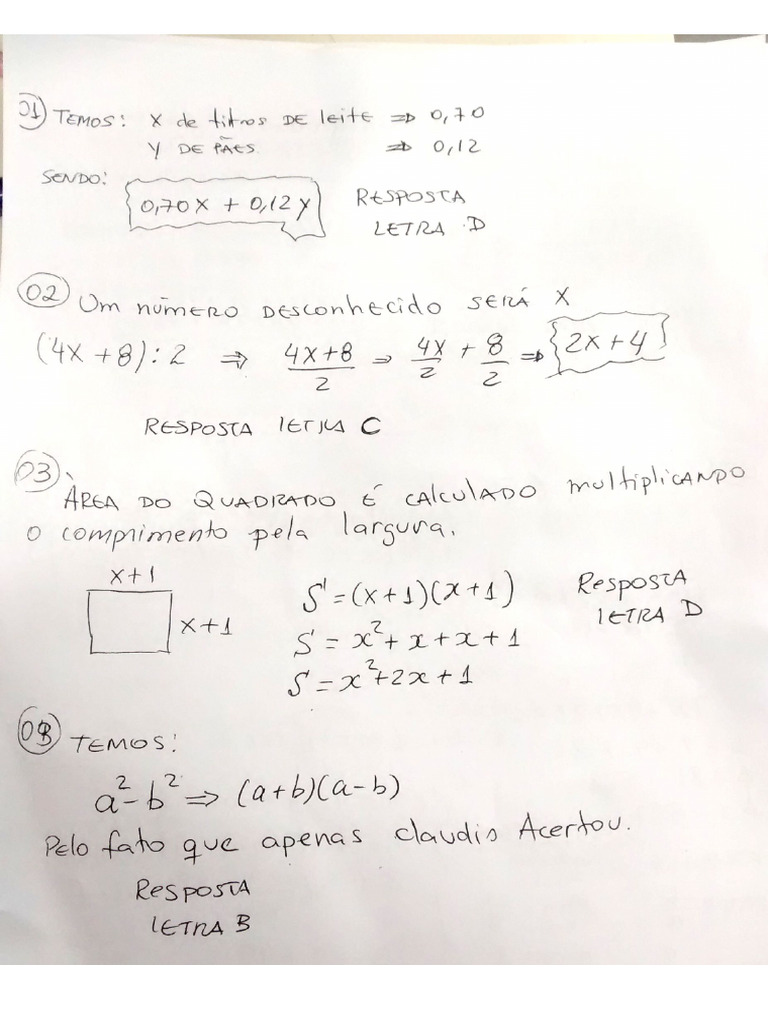 01) TEMOS: X de litros DE leite ⇒ 0,70
Y DE PÃES ⇒ 0,12
SENDO: 0,70X + 0,12Y RESPOSTA
LETRA D
02) Um número desconhecido será X
(4X+8):2 ⇒ (4X+8)/2 ⇒ 4X/2 + 8/2 ⇒ 2X+4
RESPOSTA letra C
03) ÁREA DO QUADRADO É CALCULADO multiplicando
o comprimento pela largura.
X+1
X+1
S = (x+1)(x+1)
S = x²+x+x+1
S = x²+2x+1
Resposta
letra D
TEMOS:
a²-b² ⇒ (a+b)(a-b)
Pelo fato que apenas claudio Acertou.
RESPOSTA
LETRA B